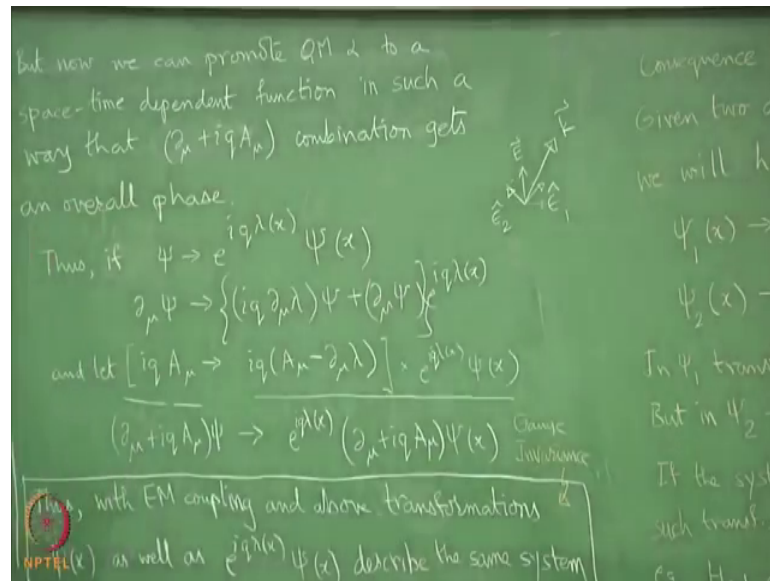 But now we can promote QM α to a
space-time dependent function in such a
way that (∂_μ + iqA_μ) combination gets
an overall phase.
Thus, if Ψ → e^{iqλ(x)} Ψ(x)
∂_μΨ → {(iq∂_μλ)Ψ + (∂_μΨ)}e^{iqλ(x)}
and let [iqA_μ → iq(A_μ - ∂_μλ)] × e^{iqλ(x)}Ψ(x)
(∂_μ + iqA_μ)Ψ → e^{iqλ(x)}(∂_μ + iqA_μ)Ψ(x)
Gauge
Invariance
Thus, with EM coupling and above transformations
Ψ(x) as well as e^{iqλ(x)}Ψ(x) describe the same system
k⃗
E⃗
ε̂_2
ε̂_1
Consequence
Given two
we will h
Ψ_1(x) →
Ψ_2(x) →
In Ψ_1 trans
But in Ψ_2
If the syst
such transf.
NPTEL